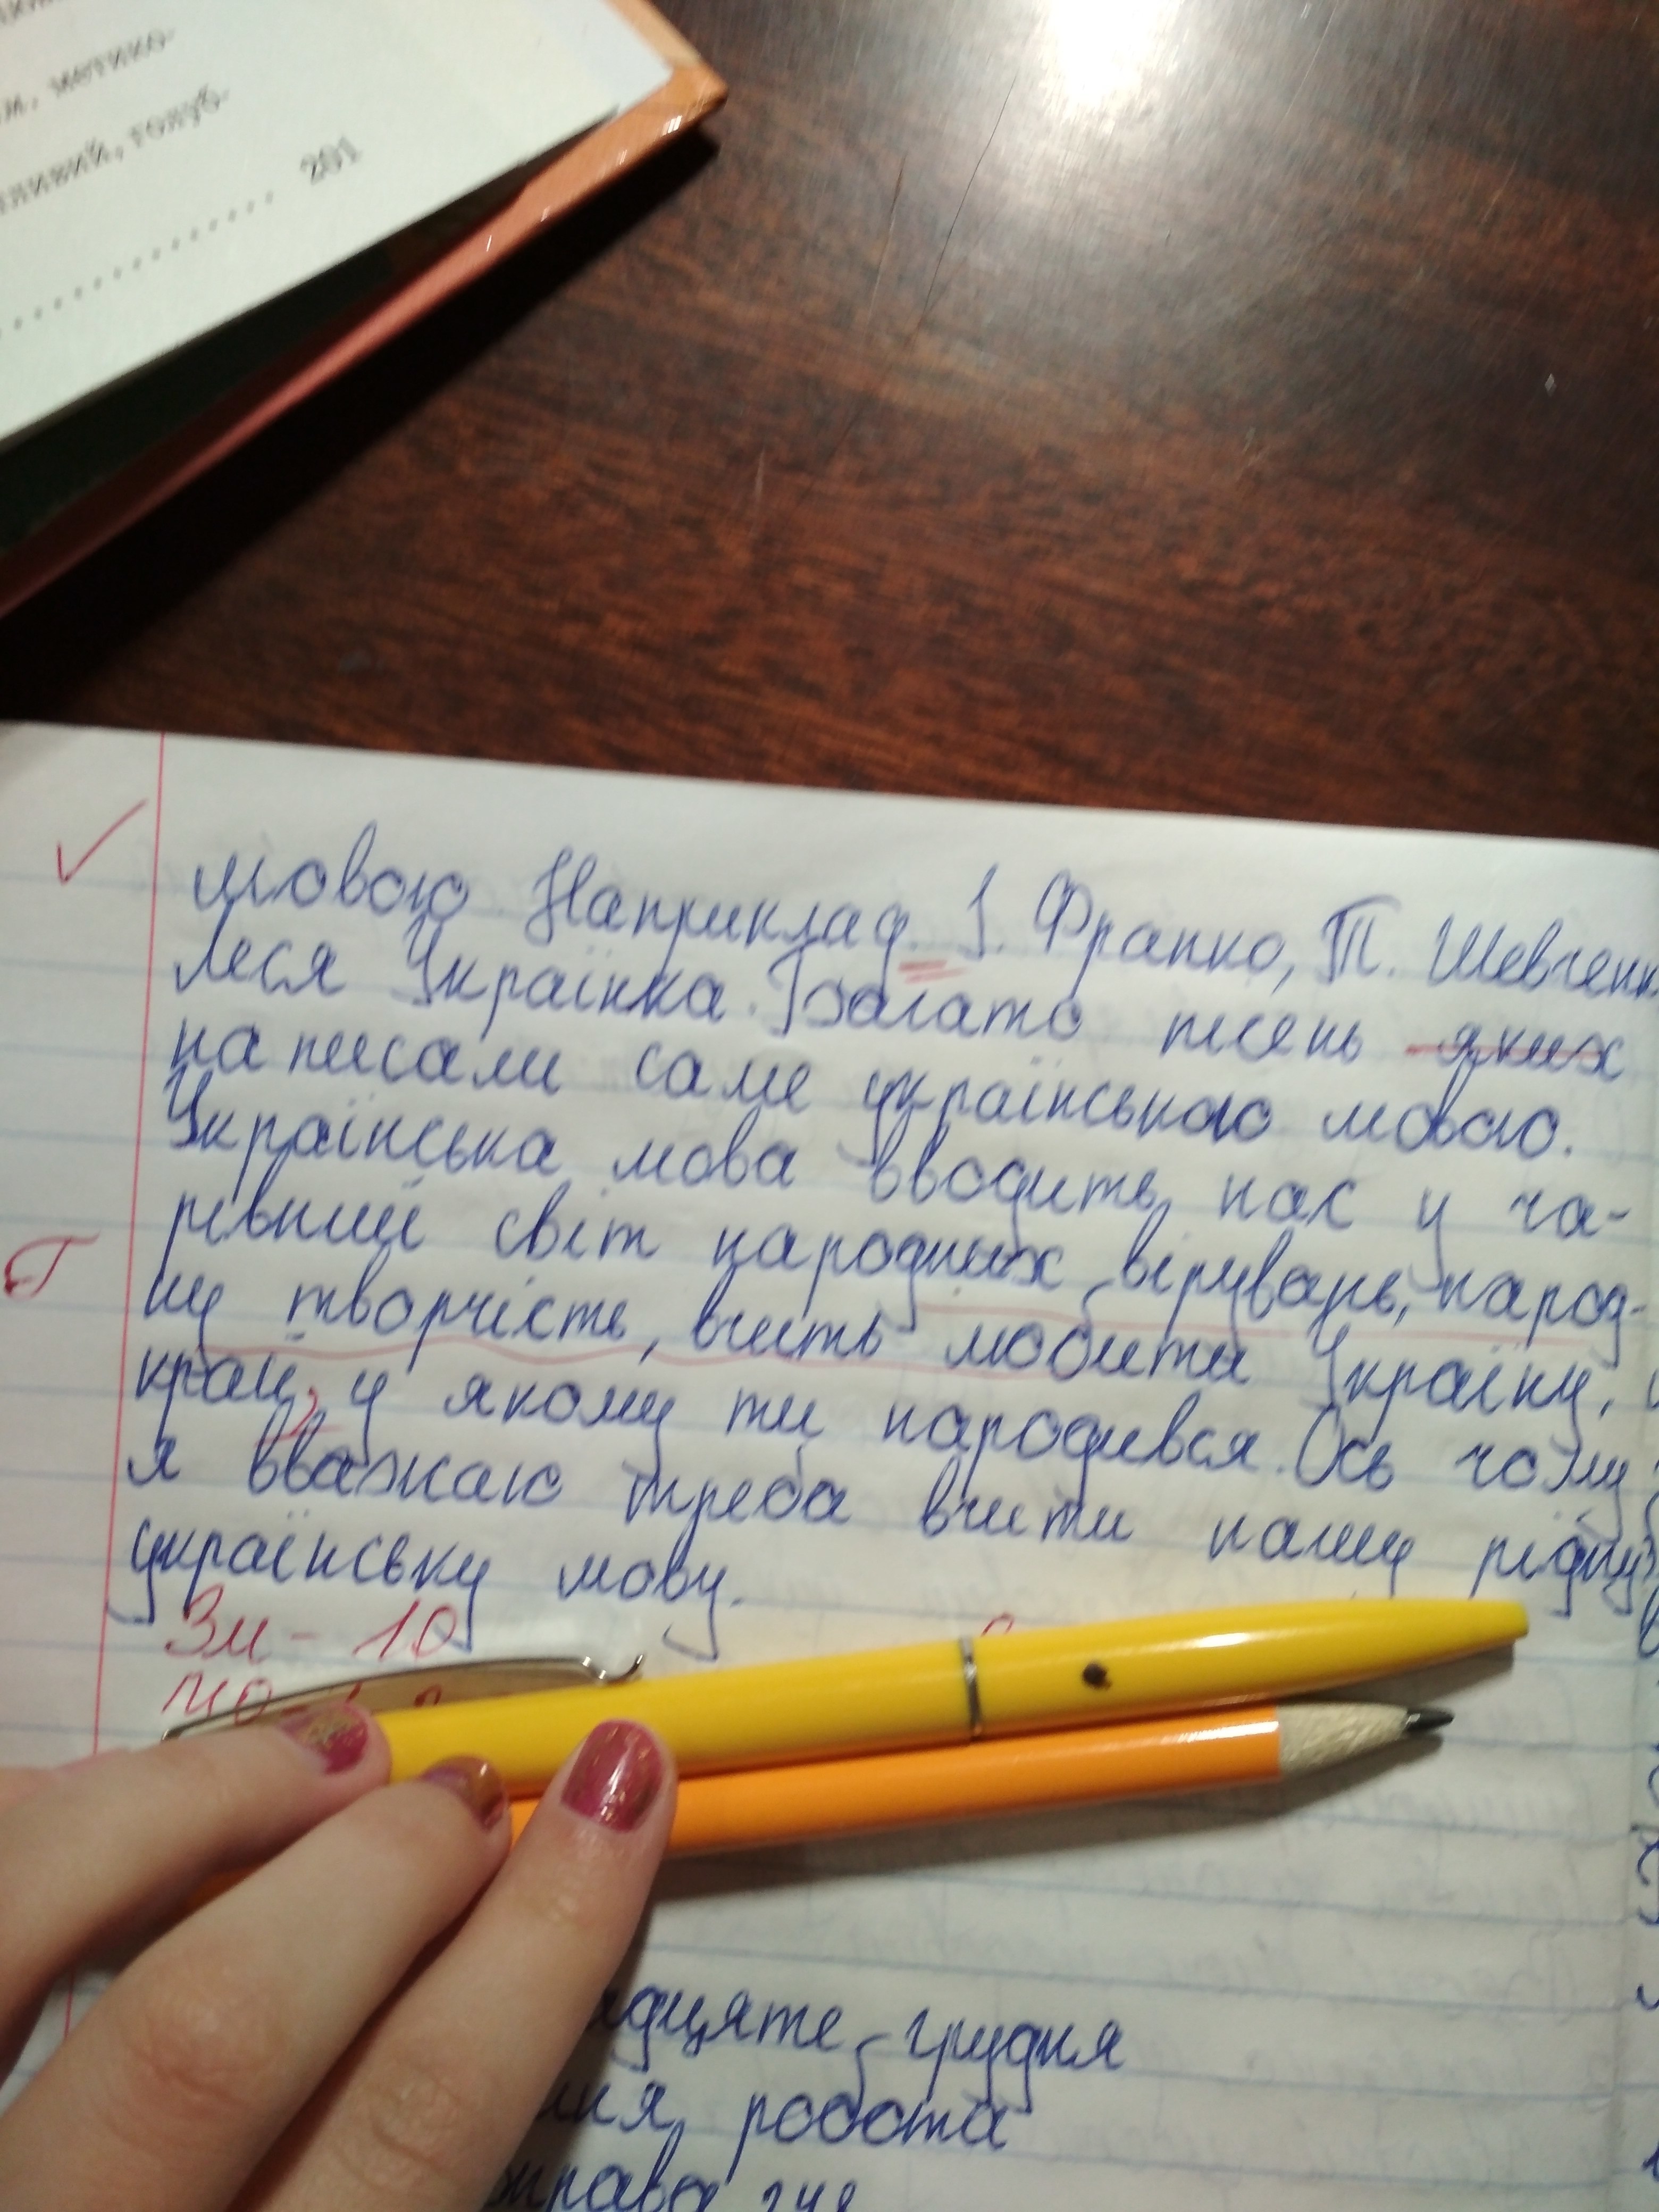 м, метико-
ливий, голуб-
201
мовою Наприклад. І. Франко, Т. Шевченк
Леся Українка. Багато пісень яких
написали саме українською мовою.
Українська мова вводить нас у ча-
рівний світ народних вірувань, народ-
ну творчість, вчить любити Україну,
край, у якому ти народився. Ось чому
я вважаю треба вчити нашу рідну
українську мову.
Зм - 10
дцяте грудня
робота